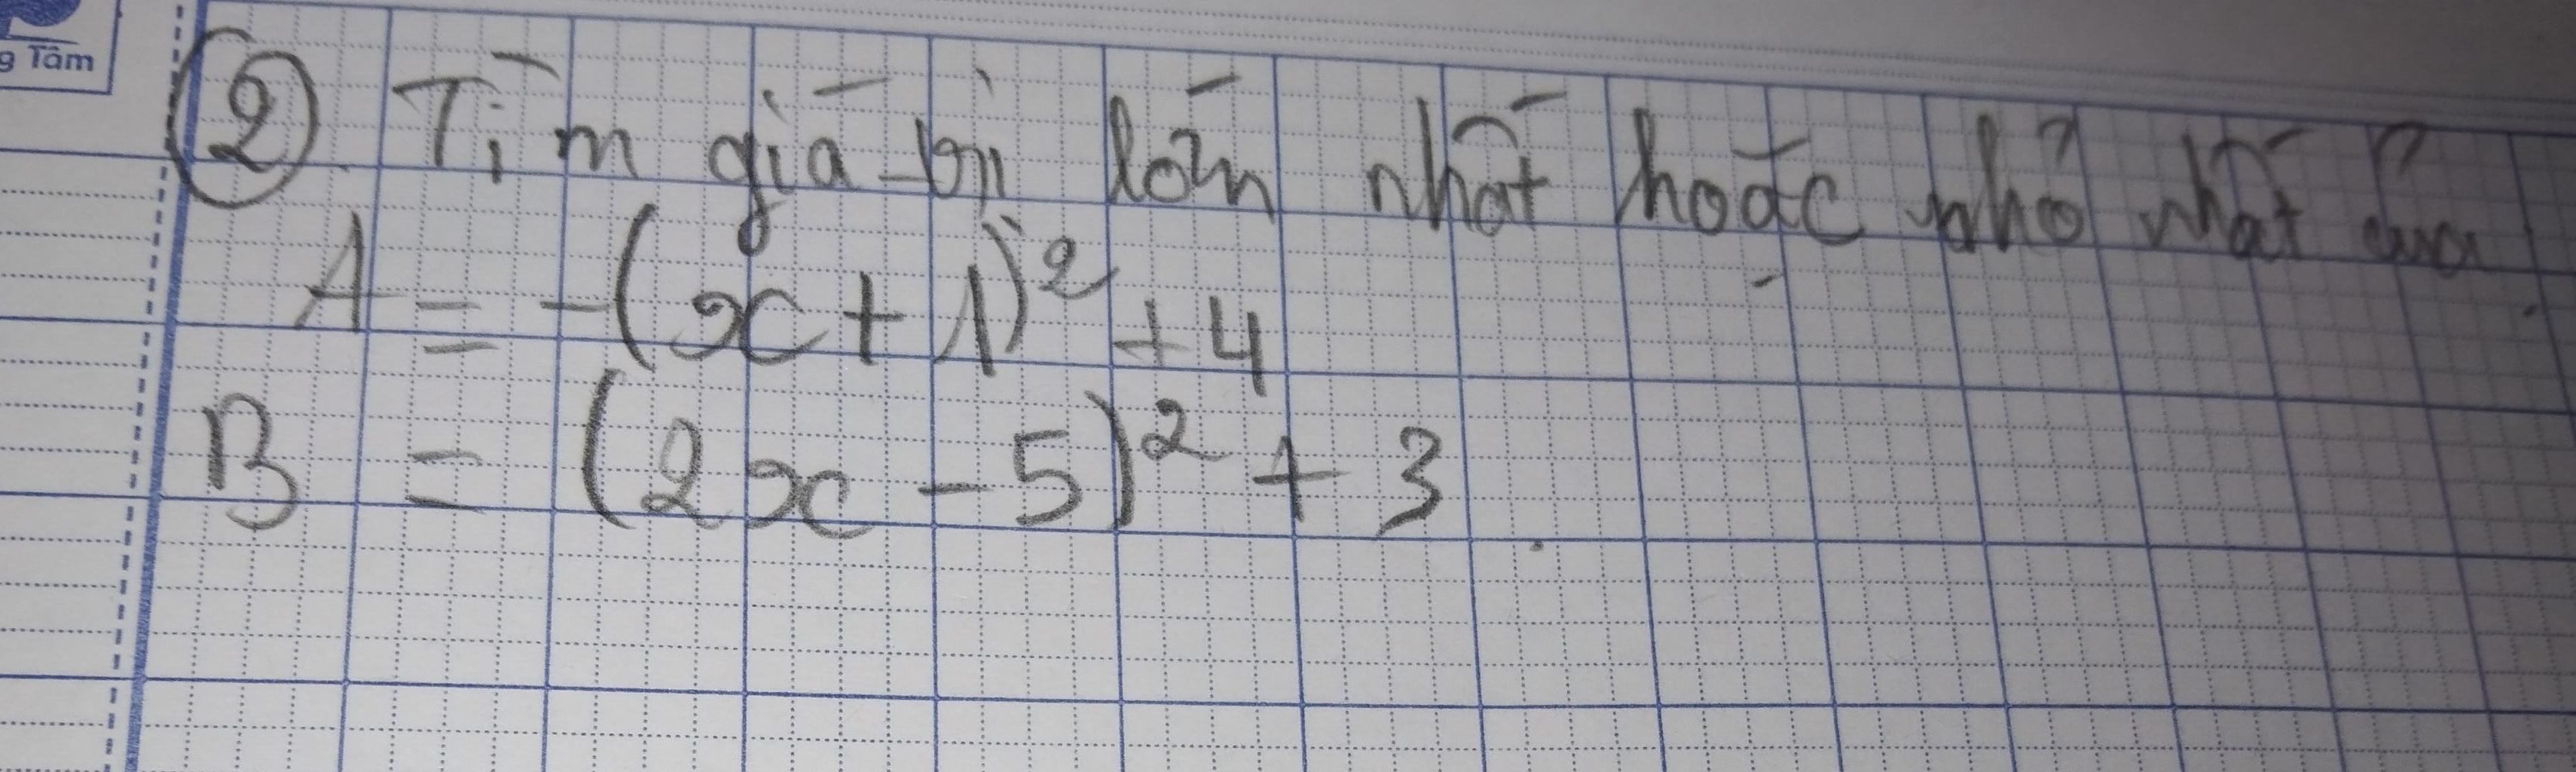 g Tâm
② Tìm giá trị lớn nhất hoặc nhỏ nhất của
A = -(x + 1)² + 4
B = (2x - 5)² + 3